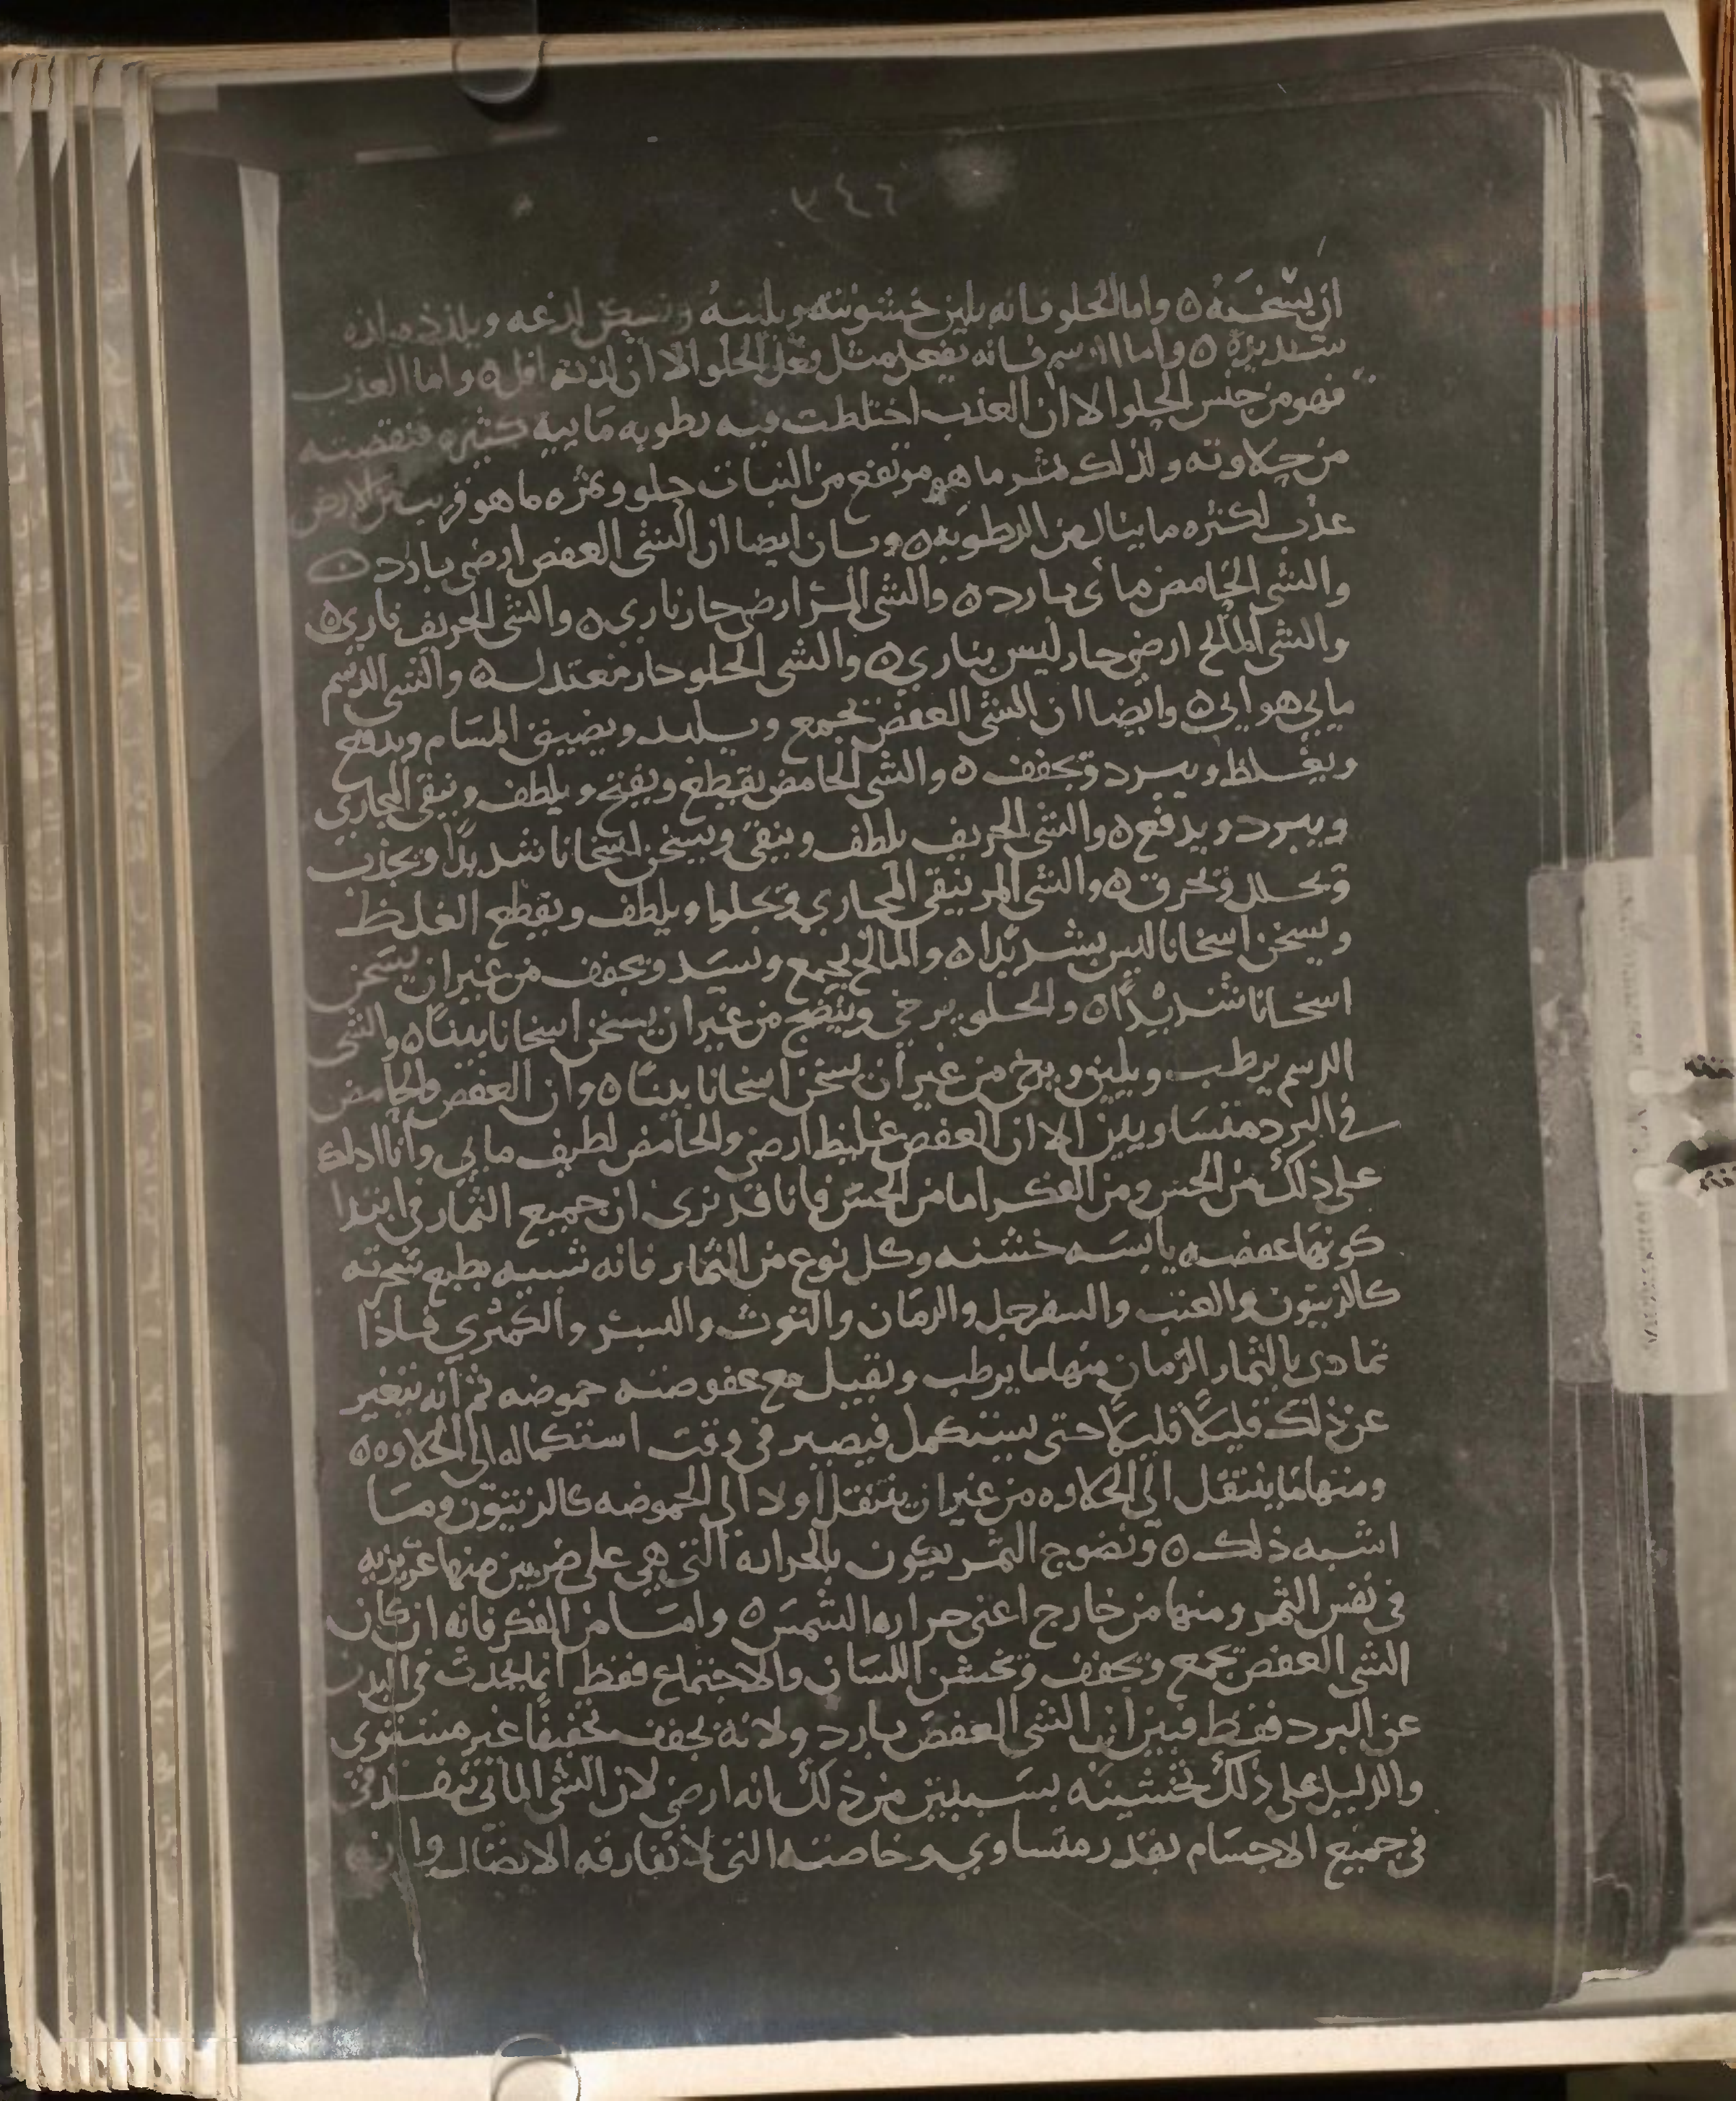 ان يسخنه ٥ واما الحلو فانه يلين خشونته ويلينه ويسكن لذعه ويلذذه لذه
شديدة ٥ واما الدسم فانه يفعل مثل فعل الحلو الا ان لذته اقل ٥ واما العذب
فهو من جنس الحلو الا ان العذب اختلطت فيه رطوبه مايية كثيره فنقصته
من حلاوته ولذلك ثمر ما هو مرتفع من النبات حلو وثمره ما هو قريب من الارض
عذب لكثره ما ينال من الرطوبه ٥ وبان ايضا ان الشي العفص ارضي بارد ٥
والشي الحامض ماى بارد ٥ والشي المر ارضي حار ناري ٥ والشي الحريف ناري ٥
والشي المالح ارضي حار ليس بناري ٥ والشي الحلو حار معتدل ٥ والشي الدسم
مايي هوايي ٥ وايضا ان الشي العفص يجمع ويلبد ويضيق المسام ويدفع
ويغلظ ويبرد ويجفف ٥ والشي الحامض يقطع ويفتح ويلطف وينقي المجاري
ويبرد ويدفع ٥ والشي الحريف يلطف وينقي ويسخن اسخانا شديدًا ويجذب
ويحلل ويحرق ٥ والشي المر ينقي المجاري ويجلوا ويلطف ويقطع الغلظ
ويسخن اسخانا ليس بشديدًا ٥ والمالح يجمع ويسد ويجفف من غير ان يسخن
اسخانا شديدًا ٥ والحلو يرخي وينضج من غير ان يسخن اسخانا بينًا ٥ والشي
الدسم يرطب ويلين ويرخي من غير ان يسخن اسخانا بينًا ٥ وان العفص والحامض
في البرد متساويين الا ان العفص غليظ ارضي والحامض لطيف مايي وانا ادلك
على ذلك من الحس ومن الفكر اما من الحس فانا قد نرى ان جميع الثمار في ابتدا
كونها عفصه يابسه خشنه وكل نوع من الثمار فانه شبيه بطبع شجرته
كالزيتون والعنب والسفرجل والرمان والتوث والبسر والكمثري فاذا
تمادى بالثمار الزمان منها ما يرطب ويقبل مع عفوصته حموضه ثم انه يتغير
عن ذلك قليلًا قليلًا حتى يستكمل فيصير في وقت استكماله الى الحلاوه ٥
ومنها ما ينتقل الى الحلاوه من غير ان ينتقل اولا الى الحموضه كالزيتون وما
اشبه ذلك ٥ ونضوج الثمر يكون بالحراره التي هي على ضربين منها غريزيه
في نفس الثمر ومنها من خارج اعني حراره الشمس ٥ واما من الفكر فانه ان كان
الشي العفص يجمع ويجفف ويخشن اللسان والاجتماع فقط انما يحدث في البدن
عن البرد فقط فبين ان الشي العفص بارد ولانه يجفف تخفيفًا غير مستوي
والدليل على ذلك تخشينه بسببين من ذلك بانه ارضي لان الشي المائي ينفذ في
في جميع الاجسام بقدر متساوي وخاصته التي لا تفارقه الاتصال وان